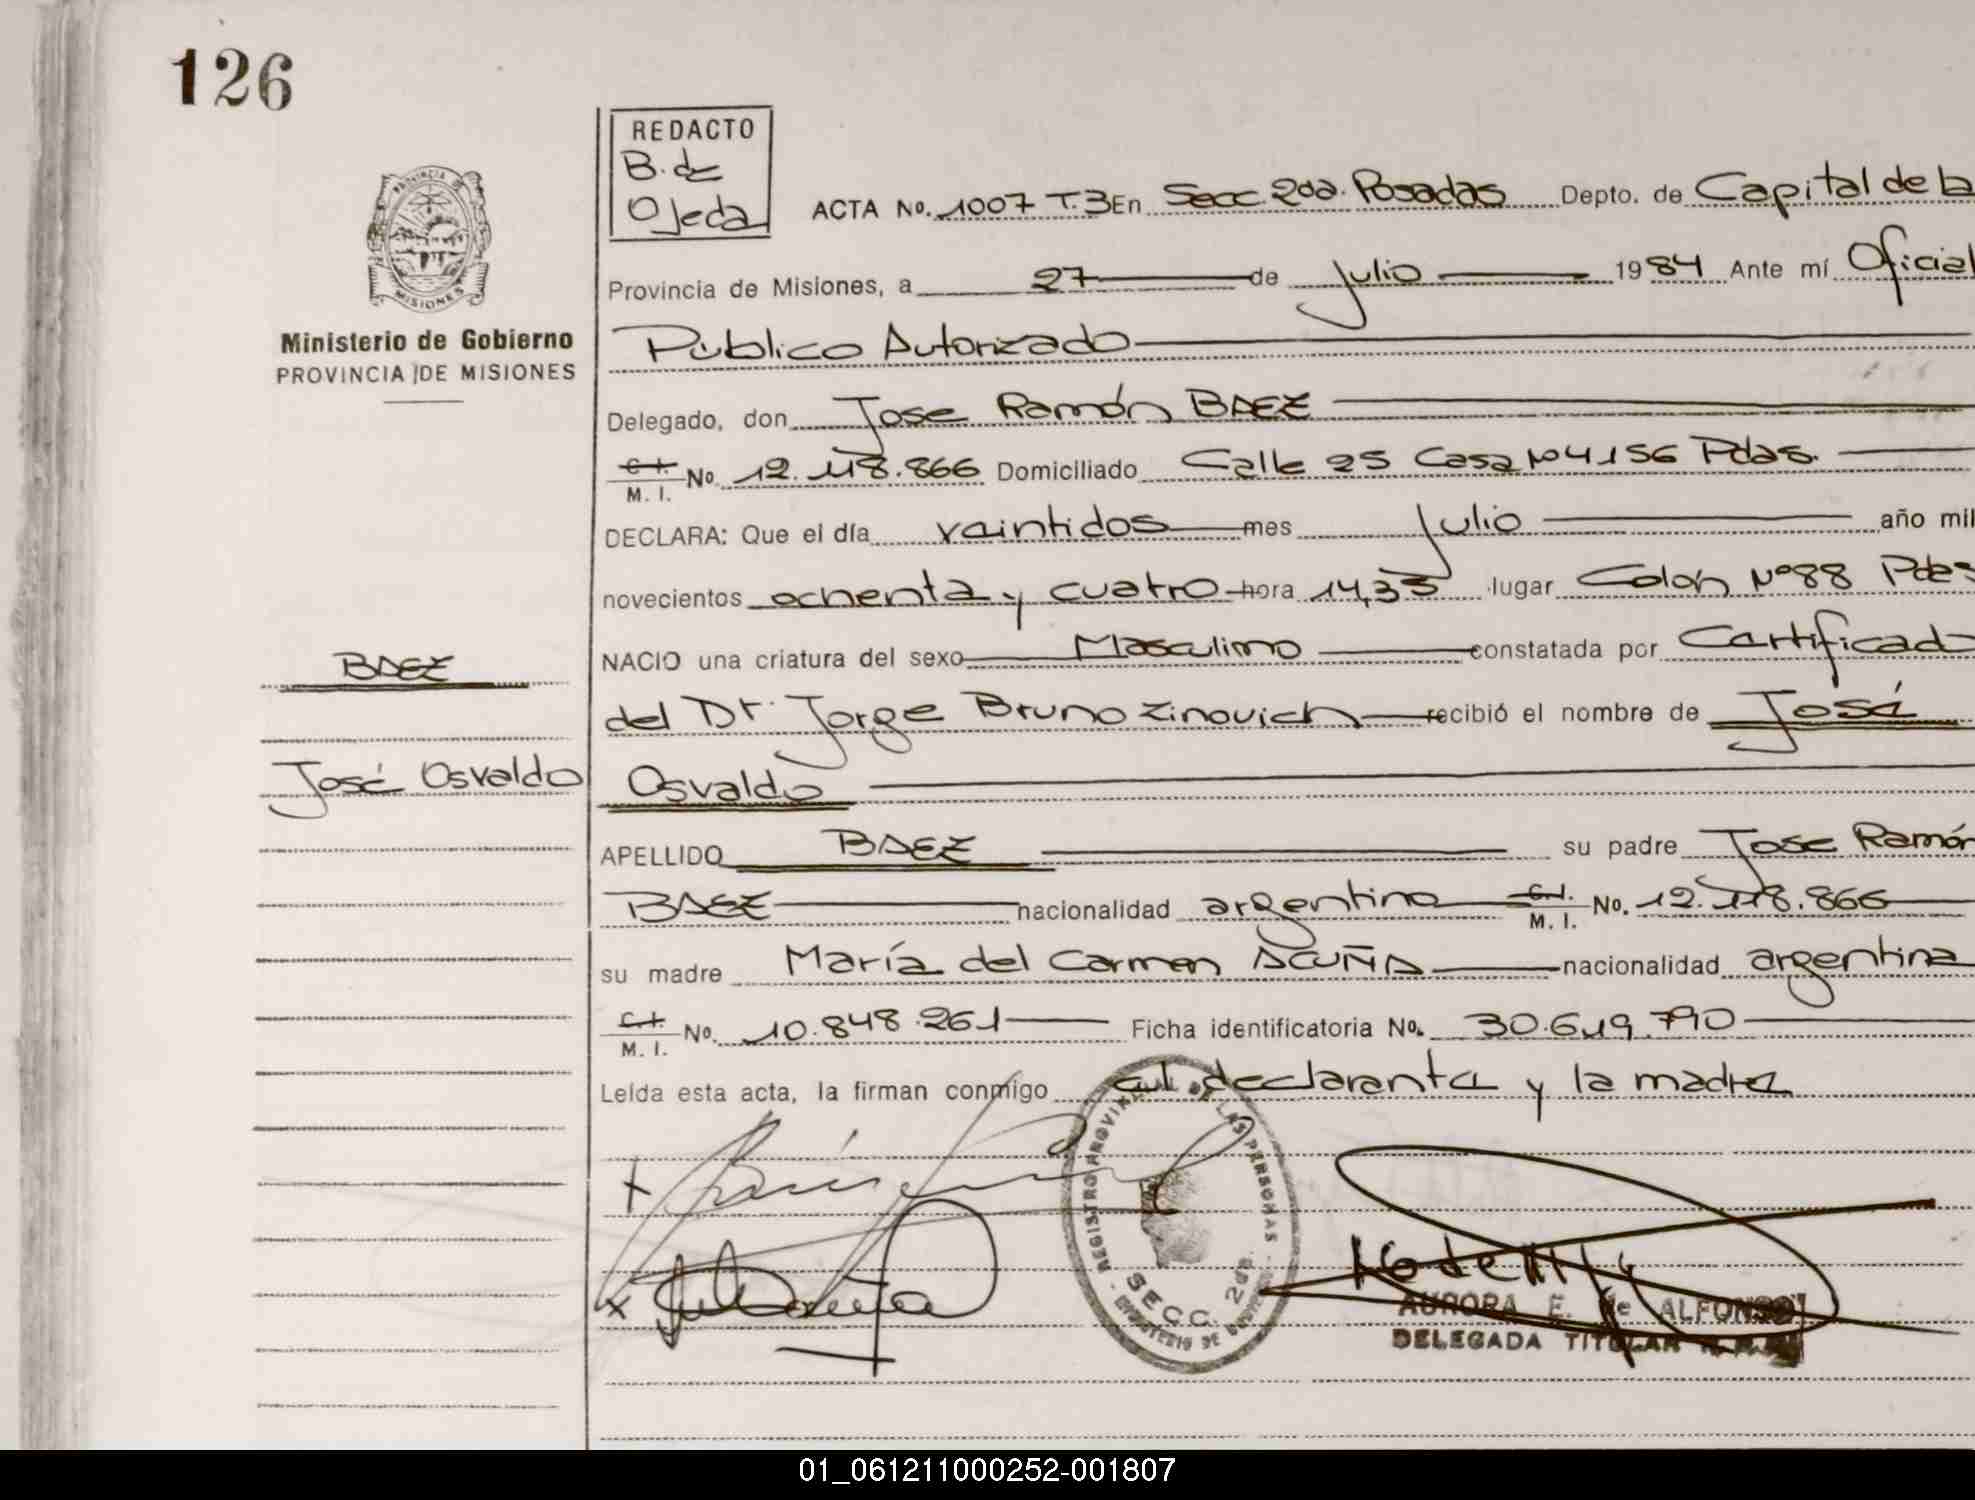 126
REDACTO
B. de
Ojeda
ACTA No. 1007 T.3 En Secc. 2da. Posadas Depto. de Capital de la
Provincia de Misiones, a 27 de Julio 1984 Ante mí Oficial
Público Autorizado
Delegado, don Jose Ramón BAEZ
C.I. M. I. No. 12.118.866 Domiciliado Calle 25 Casa Nº 4156 Pdas.
DECLARA: Que el día veintidos mes Julio año mil
novecientos ochenta y cuatro hora 14,35 lugar Colón Nº 88 Pdas
NACIO una criatura del sexo Masculino constatada por Certificado
del Dr. Jorge Bruno Zinovich recibió el nombre de José
Osvaldo
APELLIDO BAEZ su padre Jose Ramón
BAEZ nacionalidad argentina C.I. M. I. No. 12.118.866
su madre María del Carmen ACUÑA nacionalidad argentina
C.I. M. I. No. 10.848.261 Ficha identificatoria No. 30.619.790
Leída esta acta, la firman conmigo el declarante y la madre
PROVINCIA DE
MISIONES
Ministerio de Gobierno
PROVINCIA DE MISIONES
BAEZ
José Osvaldo
REGISTRO PROVINCIAL DE LAS PERSONAS
SECC. 2da.
AURORA E. de ALFONSO
DELEGADA TITULAR
01_061211000252-001807